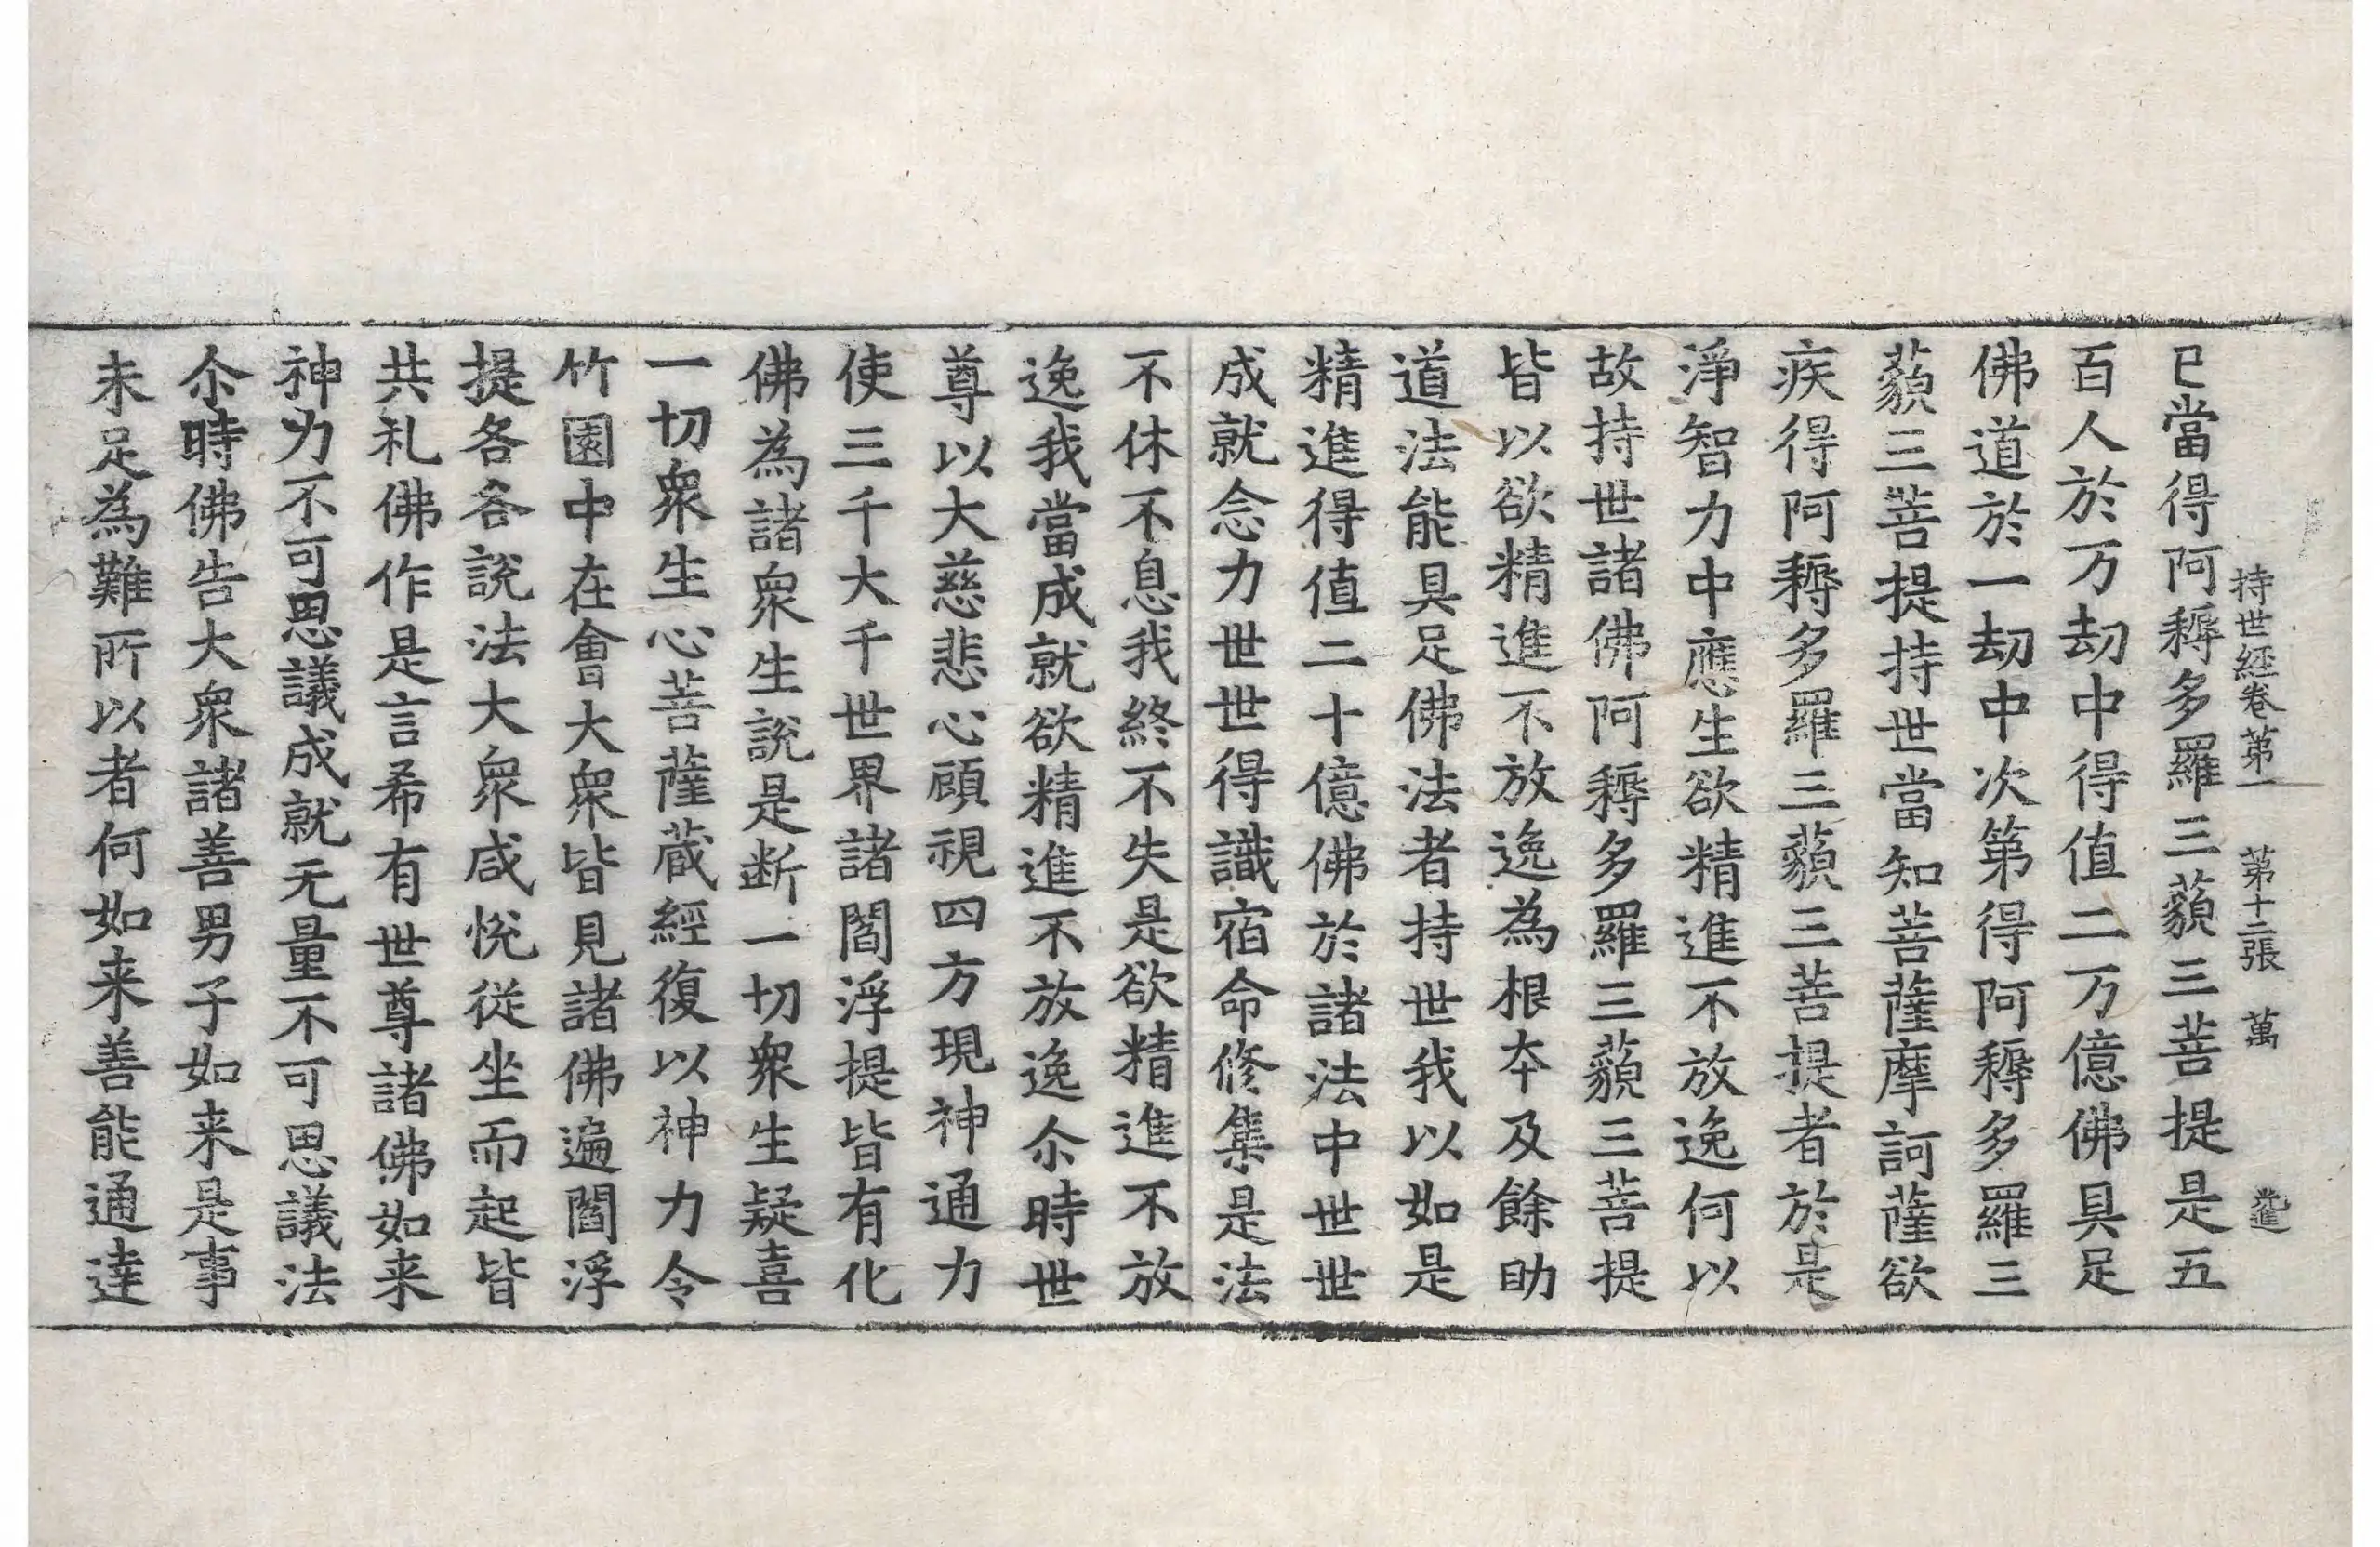 持世經卷第一　第十二張　萬
已當得阿耨多羅三藐三菩提是五
百人於万劫中得值二万億佛具足
佛道於一劫中次第得阿耨多羅三
藐三菩提持世當知菩薩摩訶薩欲
疾得阿耨多羅三藐三菩提者於是
淨智力中應生欲精進不放逸何以
故持世諸佛阿耨多羅三藐三菩提
皆以欲精進不放逸為根本及餘助
道法能具足佛法者持世我以如是
精進得值二十億佛於諸法中世世
成就念力世世得識宿命修集是法
不休不息我終不失是欲精進不放
逸我當成就欲精進不放逸尒時世
尊以大慈悲心顧視四方現神通力
使三千大千世界諸閻浮提皆有化
佛為諸衆生說是断一切衆生疑喜
一切衆生心菩薩蔵經復以神力令
竹園中在會大衆皆見諸佛遍閻浮
提各各說法大衆咸悅從坐而起皆
共礼佛作是言希有世尊諸佛如来
神力不可思議成就无量不可思議法
尒時佛告大衆諸善男子如来是事
未足為難所以者何如来善能通達